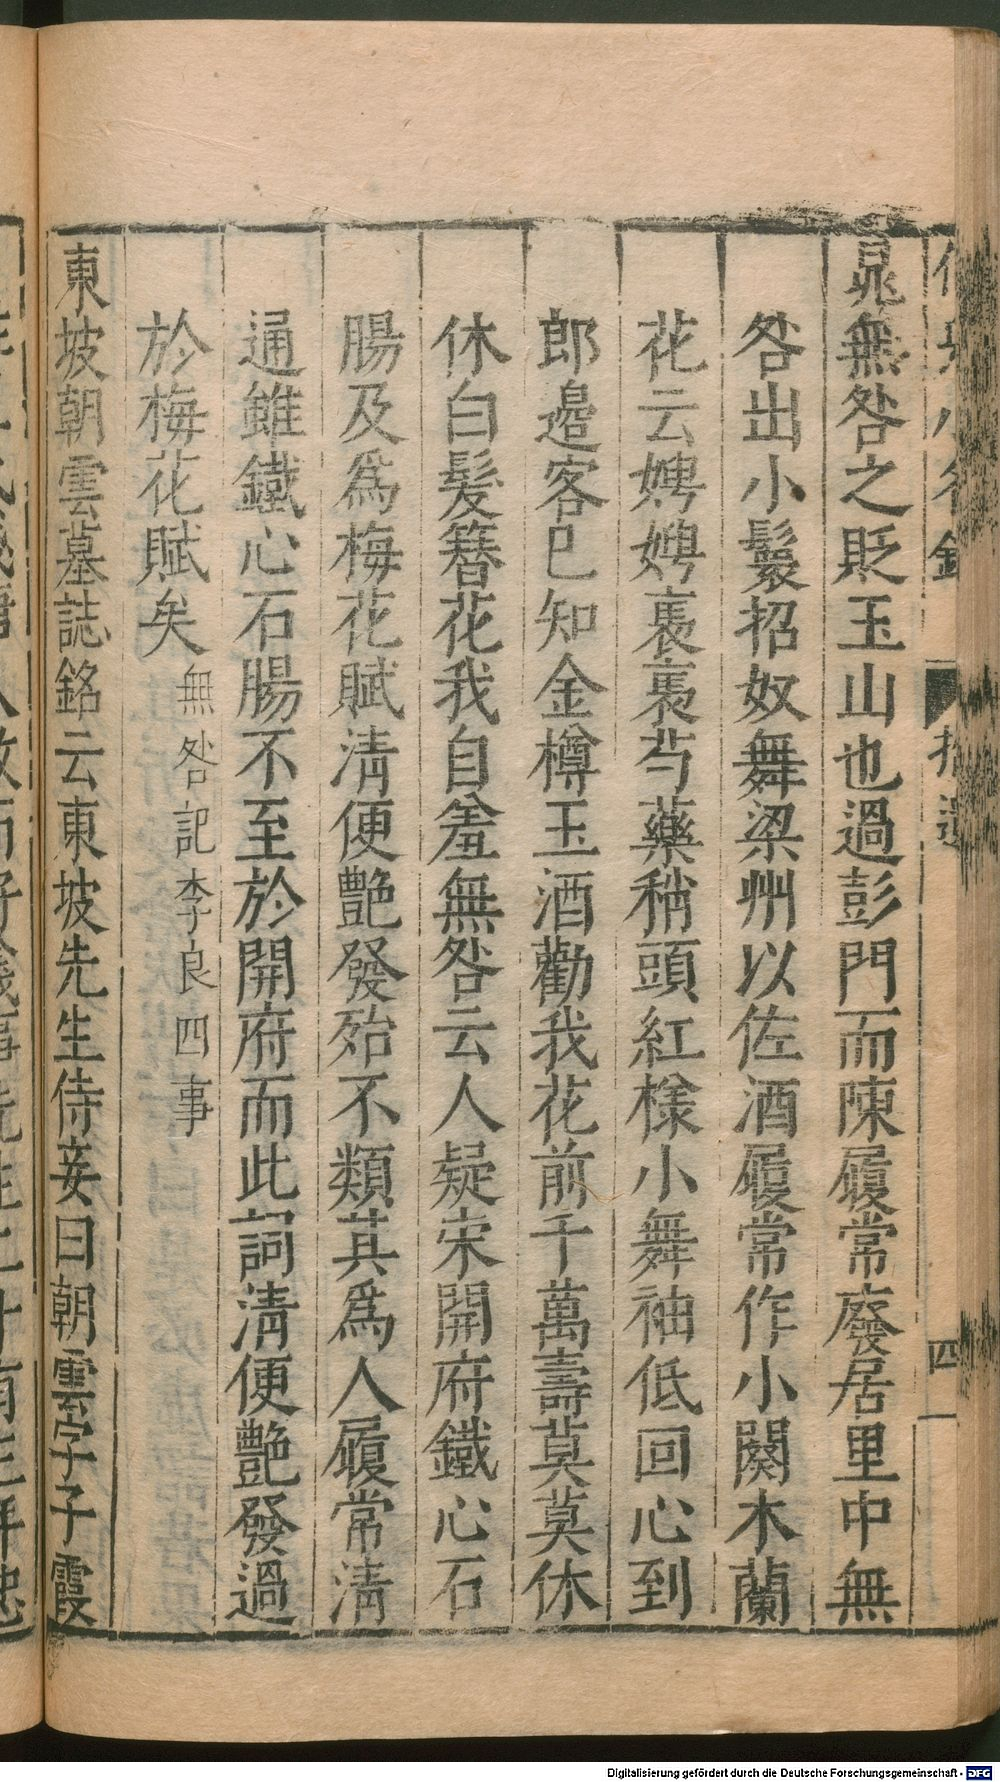 晁無咎之貶玉山也過彭門而陳履常廢居里中無
咎出小鬟招奴舞梁州以佐酒履常作小闋木蘭
花云娉娉裊裊芍藥稍頭紅樣小舞袖低回心到
郎邉客已知金樽玉酒勸我花前千萬壽莫莫休
休白髮簪花我自羞無咎云人疑宋開府鐵心石
腸及爲梅花賦淸便艶發殆不類其爲人履常淸
通雖鐵心石腸不至於開府而此詞淸便艶發過
於梅花賦矣 無咎記李良四事
東坡朝雲墓誌銘云東坡先生侍妾曰朝雲字子霞
拾遺
四
Digitalisierung gefördert durch die Deutsche Forschungsgemeinschaft - DFG